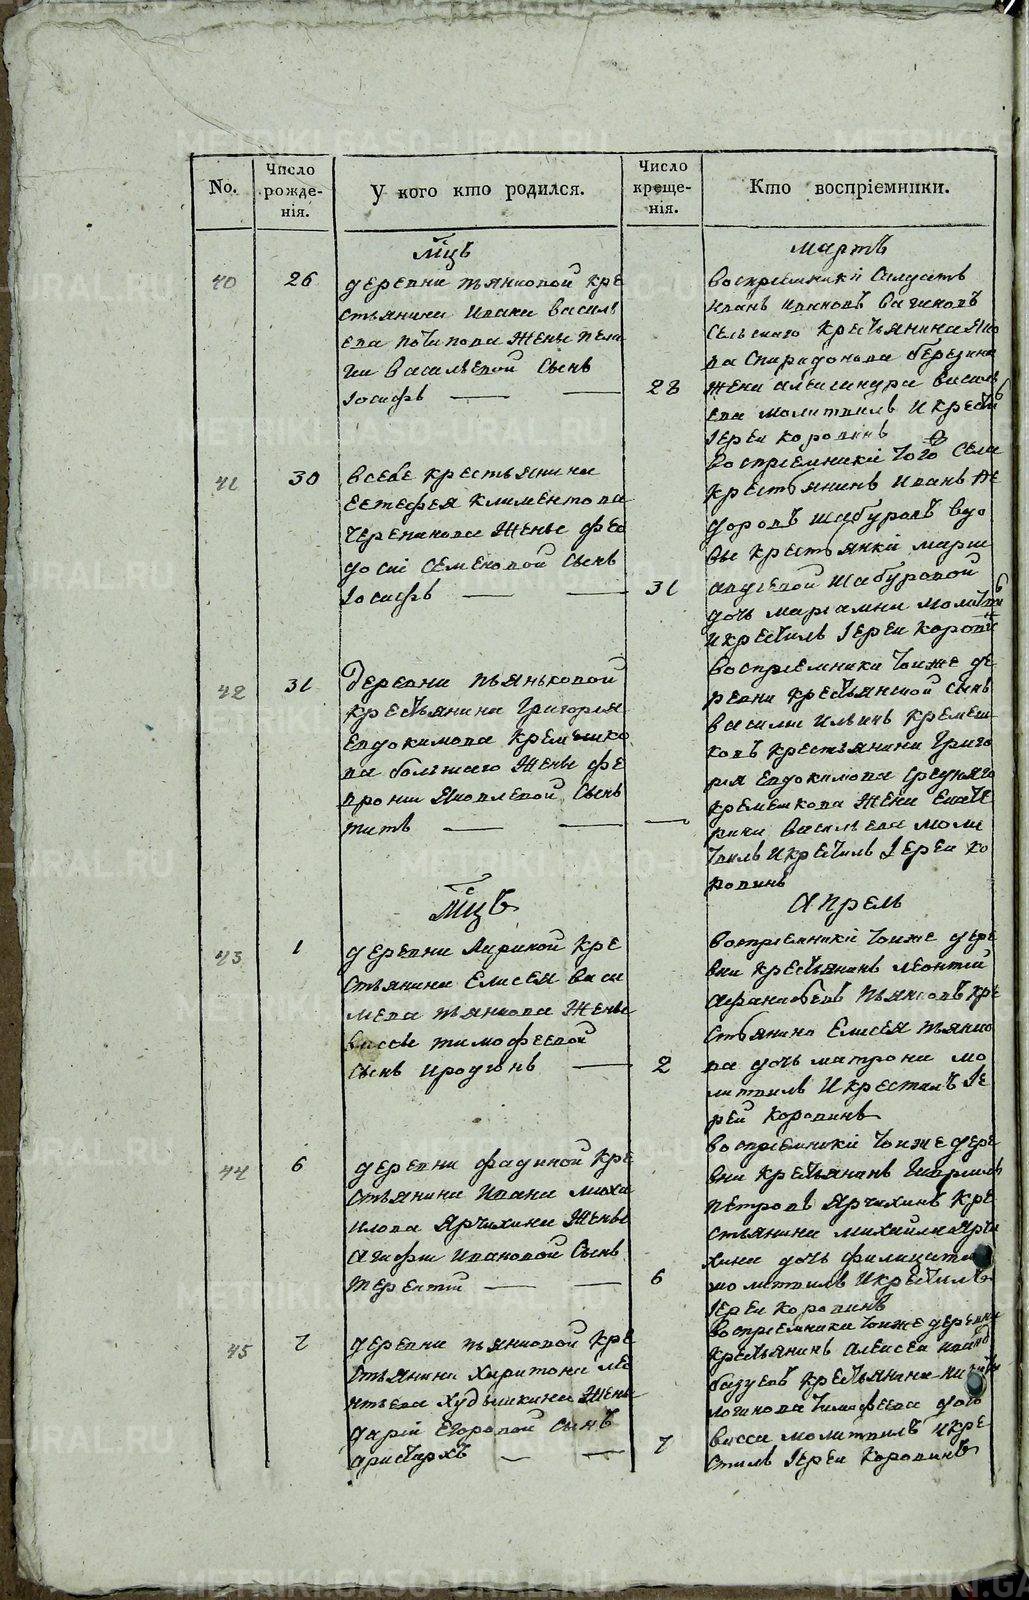 No.
Число рожде-нія.
У кого кто родился.
Число креще-нія.
Кто воспріемники.
мцъ
мартъ
40
26
деревни пьянковой кре
стьянина Ивана василь
ева
жены пела
гии васильевой сынъ
Іосифъ
28
воспріемникі
иванъ ивановъ вагиновъ
сельскаго крестьянина яко
ва спиридонова березина
жена александра василь
ева молитвилъ и крести
Іереи коровинъ
41
30
в селе крестьянина
евстефея климентова
черепанова жены фео
досиі семеновой сынъ
Іосифъ
31
воспріемникі того села
крестьянинъ иванъ фе
доровъ шабуровъ вдо
вы крестьянкі марии
шабуровой
дочь мариамна молитви
и крестилъ Іереи коровин
42
31
деревни пьянковой
крестьянина григорья
евдокимова кремешко
ва большаго жены фе
вроніи яковлевой сынъ
титъ
воспріемники тоиже де
ревни крестьянской сынъ
василии ильинъ кремеш
ковъ крестьянина григо
рия евдокимова средняго
кремешкова жена екате
рина васильева моли
твилъ и крестилъ Іереи ко
ровинъ
мцъ
апрель
43
1
деревни Лириной кре
стьянина елисея васи
льева пьянкова жены
вассы тимофеевой
сынъ иродіонъ
2
воспріемникі тоиже дере
вни крестьянинъ леонтій
афанасьевъ пьянковъ кре
стьянина елисея пьянко
ва дочь матрона мо
литвилъ и крестилъ Іе
реи коровинъ
44
6
деревни фадиной кре
стьянина ивана миха
илова ярчихина жены
агафіи ивановой сынъ
терентій
6
воспріемникі тоиже дере
вни крестьянинъ
петровъ ярчихинъ кре
стьянина михайла ярчи
хина дочь
молитвилъ и крестилъ
Іереи коровинъ
45
7
деревни пьянковой кре
стьянина харитона ле
нтьева худышкина жены
дарьи егоровой сынъ
аристархъ
7
воспріемники тоиже деревни
крестьянинъ алексеи
крестьянина
логинова тимофеева дочь
васса молитвилъ и кре
стилъ Іереи коровинъ
METRIKI.GASO-URAL.RU